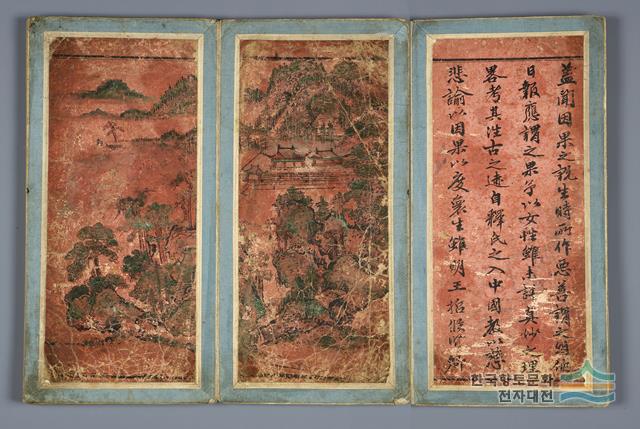 蓋聞因果之說生時所作惡善謂之因他
日報應謂之果予以女性雖未詳其妙之理
畧考其徃古之迹自釋氏之入中國敎以慈
悲諭以因果以度衆生雖明王
한국향토문화
전자대전